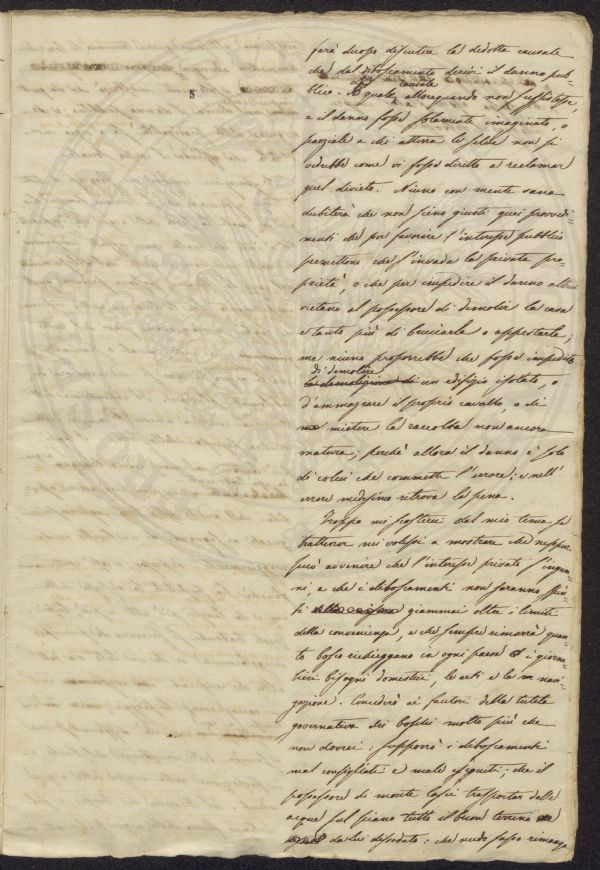 5
farà duopo discutere la dedotta causale
che dal diboscamento derivi il danno pub-
blico. La quale causale, allorquando non sussistesse,
e il danno fosse solamente imaginato, o
parziale a chi atterra le selve non si
vedrebbe come vi fosse diritto a reclamar
quel divieto. Niuno con mente sana
dubiterà che non sieno giusti quei provvedi-
menti che per favorire l'interesse pubblico
premettono che s'invada la privata pro-
prietà, o che per impedire il danno altrui
vietano al possessore di demolir la casa
e tanto più di bruciarla o appestarla;
ma niuno proporrebbe che fosse impedito
di demolire
la demolizione di un edifizio isolato, o
d'ammazzare il proprio cavallo, o di
mietere la raccolta non ancora
matura; perchè allora il danno è solo
di colui che commette l'errore; e nell'
errore medesimo ritrova la pena.
Troppo mi scosterei dal mio tema se
trattener mi volessi a mostrare che neppur
può avvenire che l'interesse privato s'ingan-
ni, e che i diboscamenti non saranno spin-
ti giammai oltre i limiti
della convenienza, e che sempre rimarrà quan-
to bosco richieggano in ogni paese i giorna-
lieri bisogni domestici, le arti e la navi-
gazione. Concederò ai fautori della tutela
governativa dei boschi molto più che
non dovrei: supporrò i diboscamenti
mal consigliati e male eseguiti; che il
possessore di monte lasci trasportar dalle
acque sul piano tutto il buon terreno
da lui dissodato: che nudo sasso rimanga